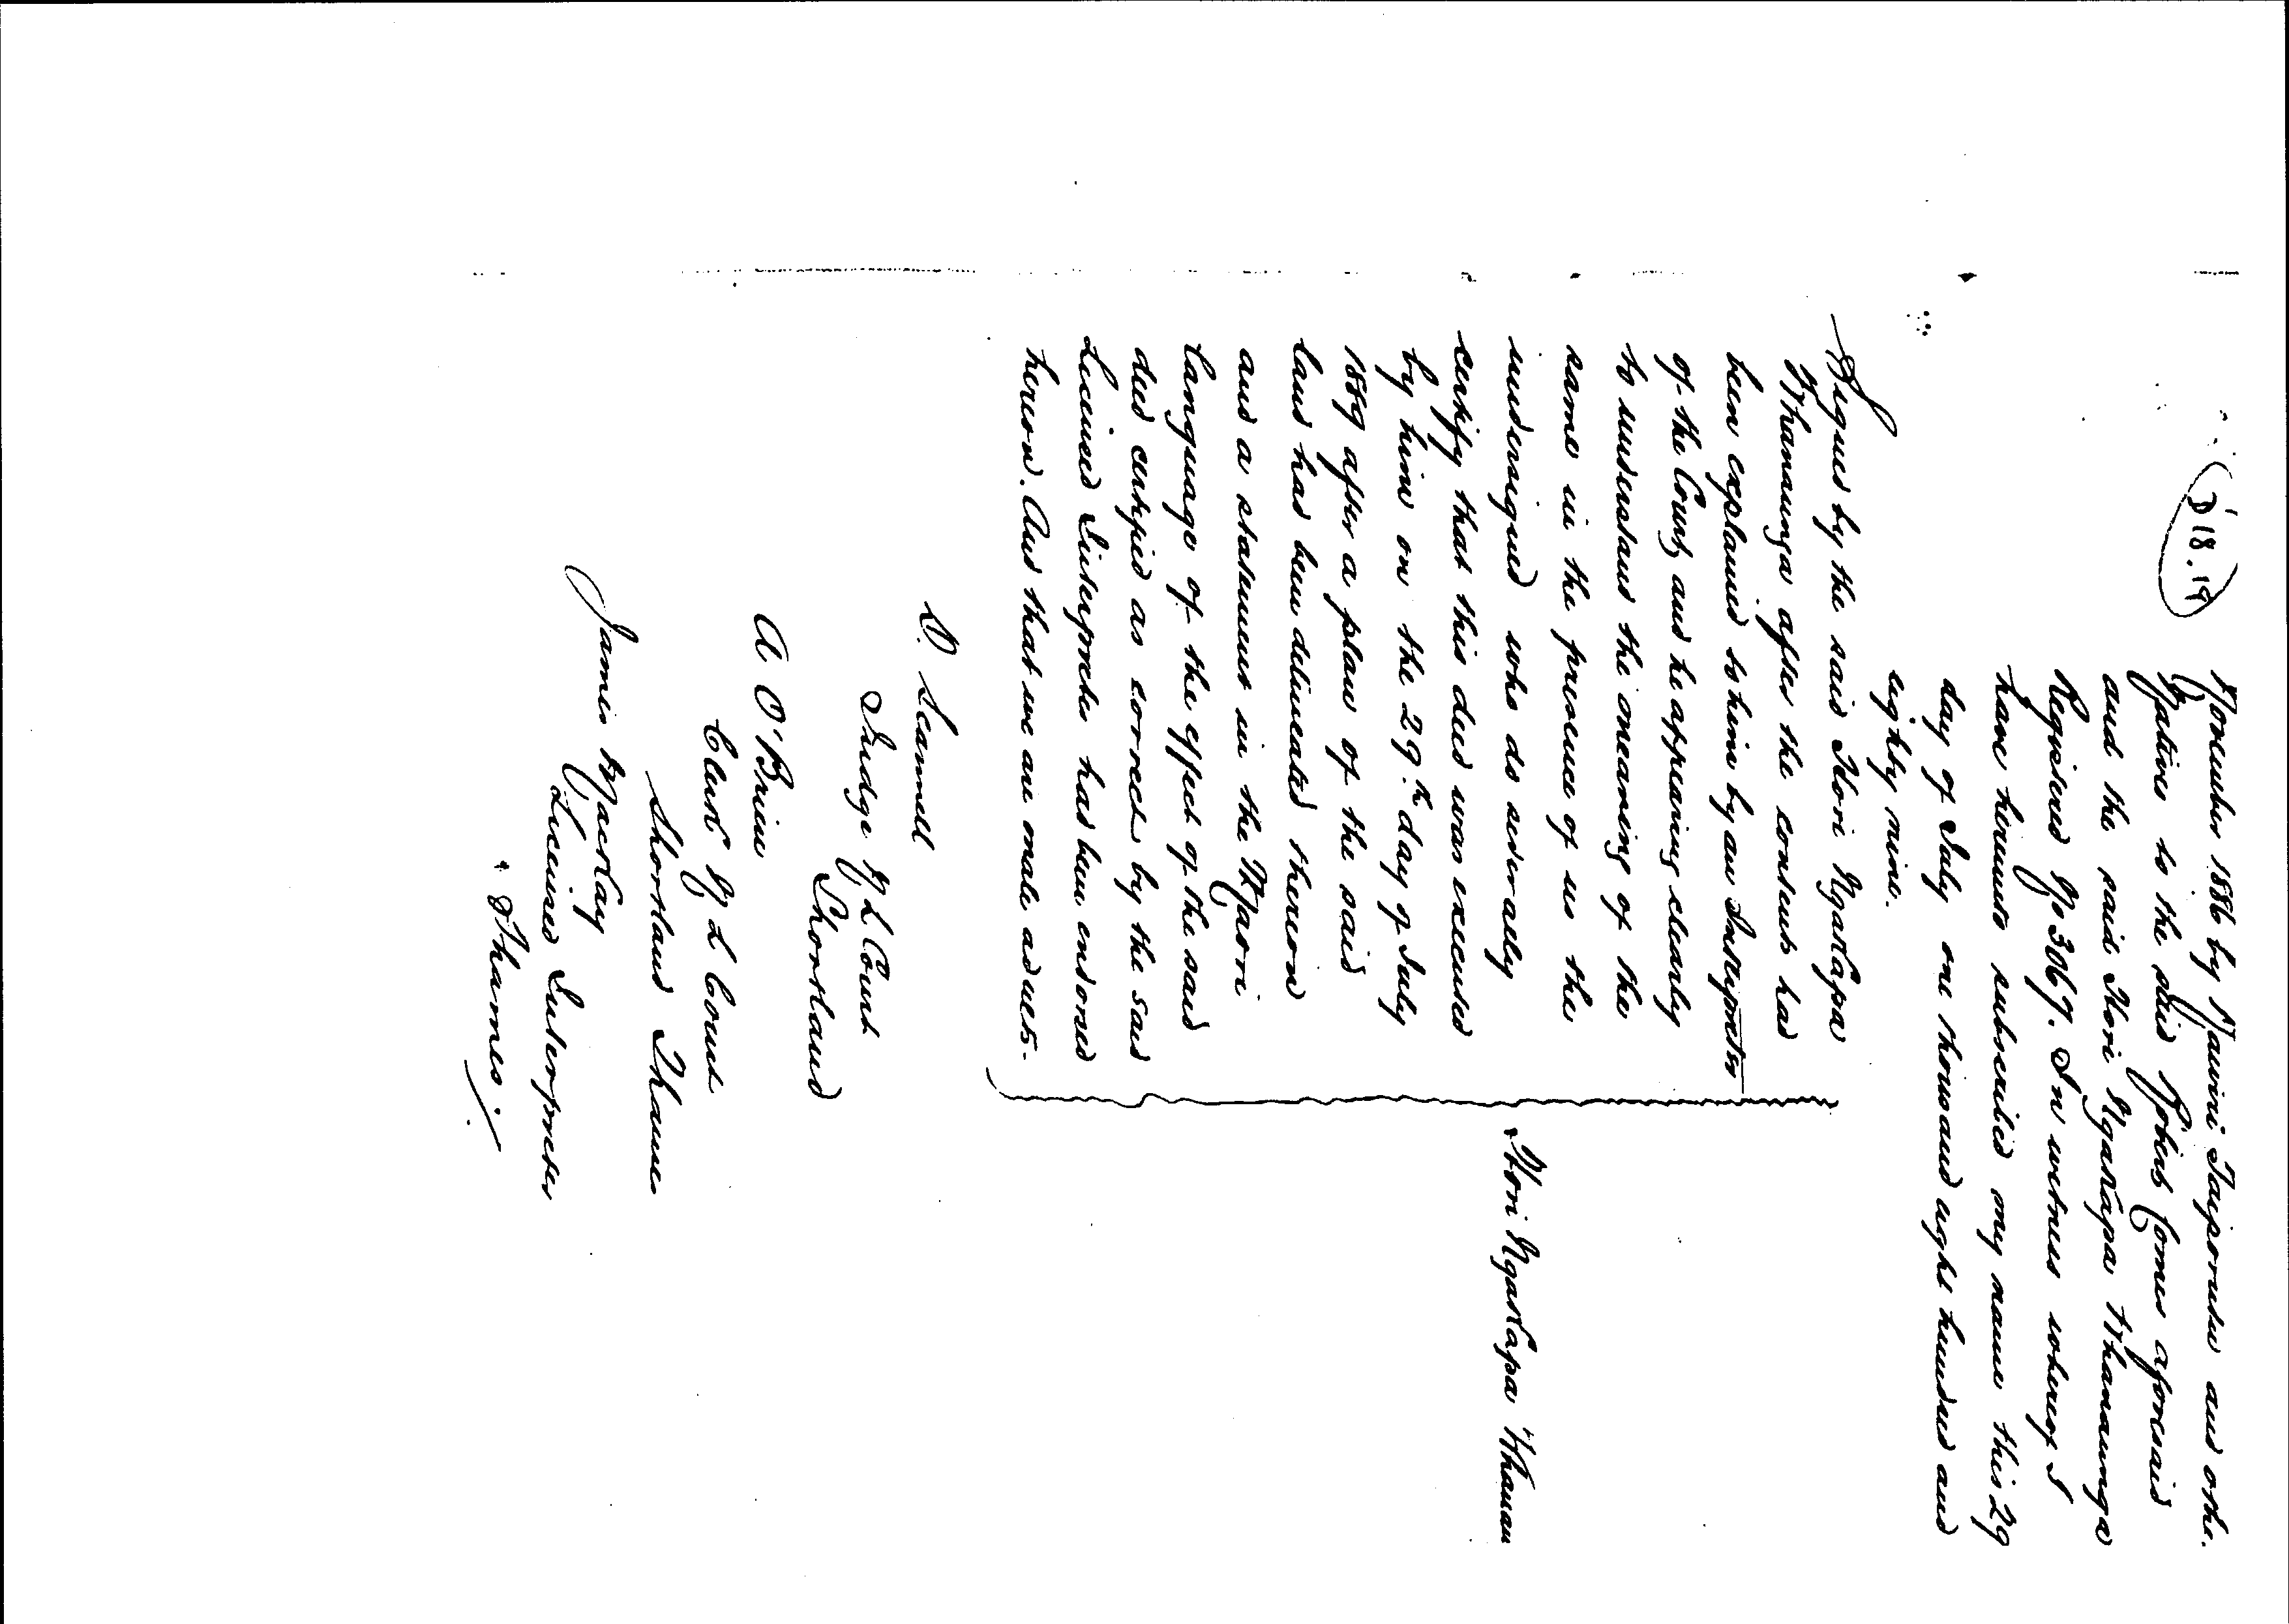 D18.19
November 1886 by Maurie Taiporutu and other
Natives to the said Robert Comes aforesaid
and the said Hori Ngakapa Whanaunga
Registered No 3067. In witness whereof I
have hereunto subscribed my name this 29
day of July one thousand eight hundred and
eighty nine.
Signed by the said Hori Ngakapa
Whanaunga after the contents had
been explained to him by an Interpreter
of the Court, and he appearing clearly
to understand the meaning of the
same in the presence of us the
undersigned who do severally
certify that this deed was executed
by him on the 29th day of July
1889 after a plan of the said
land had been delineated thereon
and a statement in the Maori
language of the effect of the said
deed certified as correct by the said
Licensed Interpreter had been endorsed
hereon. And that we are male adults.
Hori Ngakapa Whanau
D. Scannell
Judge N L Court
Shortland
A O'Brien
Clerk N L Court
Shortland Thames
James Mackay
Licensed Interpreter
Thames